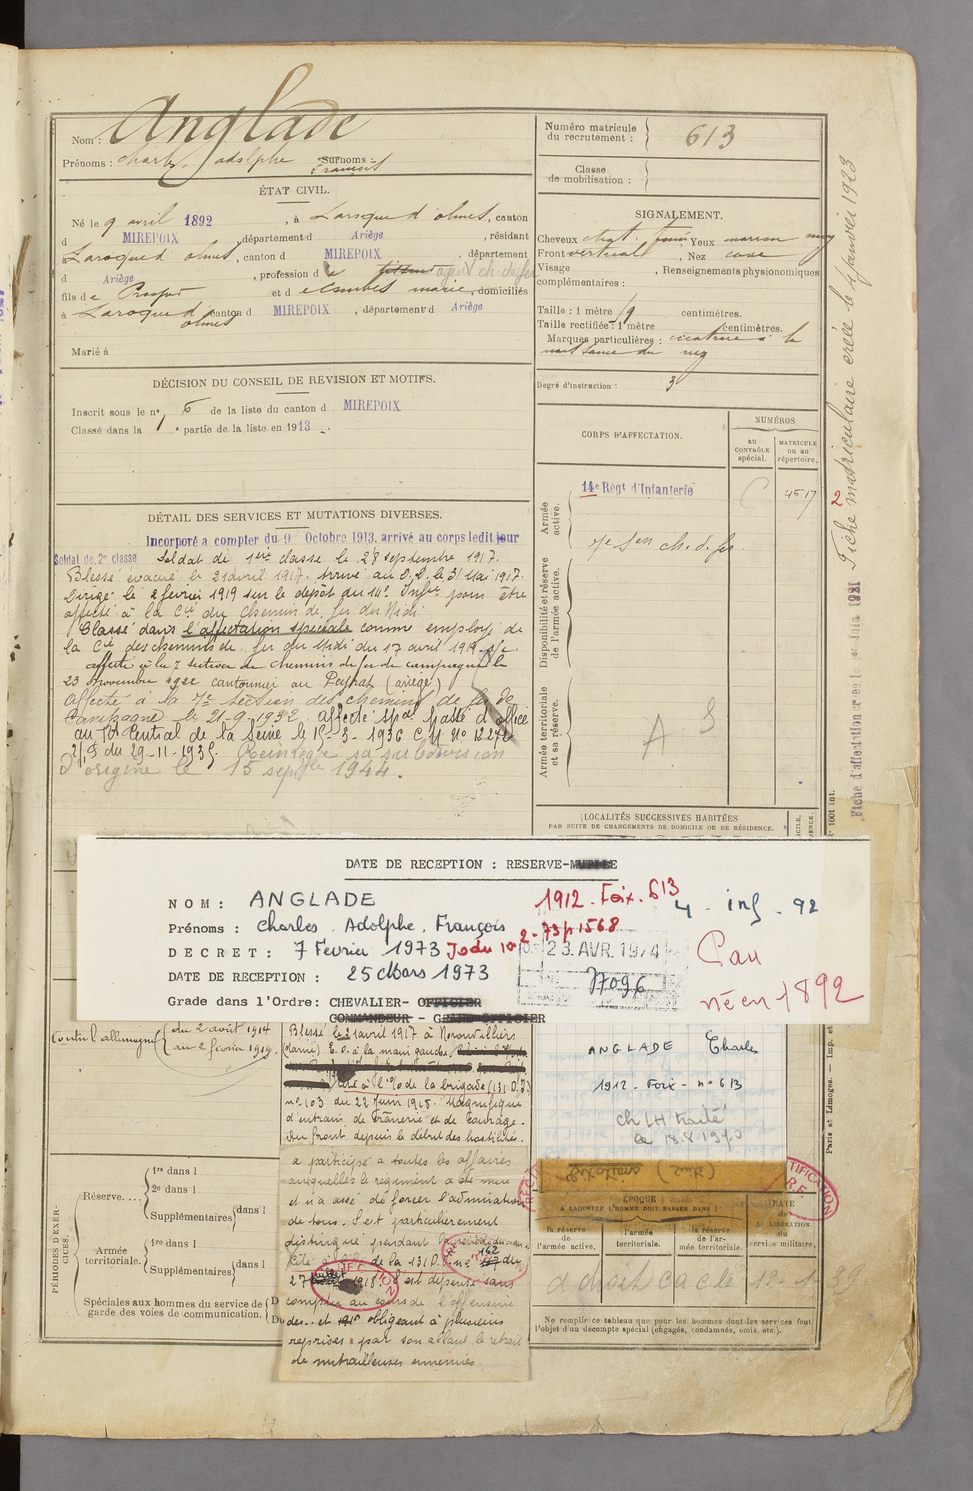 Nom : Anglade
Prénoms : Charles Adolphe Surnoms :
François
ÉTAT CIVIL.
Né le 9 avril 1892, à Laroque d'olmes, canton
d MIREPOIX, département d Ariège, résidant
à Laroque d'olmes, canton d MIREPOIX, département
d Ariège, profession de ch. de fer
fils de Prosper et d marie, domiciliés
à Laroque d'olmes canton d MIREPOIX, département d Ariège
Marié à
DÉCISION DU CONSEIL DE REVISION ET MOTIFS.
Inscrit sous le n° 6 de la liste du canton d MIREPOIX
Classé dans la 1e partie de la liste en 1913.
DÉTAIL DES SERVICES ET MUTATIONS DIVERSES.
Incorporé a compter du 9 Octobre 1913, arrivé au corps ledit jour
Soldat de 2e classe Soldat de 1ère classe le 28 septembre 1917.
Blessé évacué le 21 avril 1917. Arrivé au D.D. le 31 Mai 1917.
Dirigé le 2 février 1919 sur le dépôt du 14e Infie pour être
affecté à la Cie du Chemin de fer du Midi
Classé dans l'affectation spéciale comme employé de
la Cie des chemins de fer du Midi du 17 avril 1919
affecté à la 7 section de chemins de fer de campagne le
23 novembre 1922 cantonnier au Peyrat (ariège)
Affecté à la 7e section des chemins de fer de
Campagne le 21-9-1932 affecté spal passé d'office
au Central de la Seine le 15-3-1936 C.M. N° 12270
2/S du 29-11-1935. Réintègre sa subdivision
d'origine le 15 septbre 1944.
Numéro matricule
du recrutement : 613
Classe
de mobilisation :
SIGNALEMENT.
Cheveux chat. foncé Yeux marron
Front vertical, Nez cave
Visage , Renseignements physionomiques
complémentaires :
Taille : 1 mètre centimètres.
Taille rectifiée : 1 mètre centimètres.
Marques particulières : cicatrice à la
naissance du nez
Degré d'instruction : 3
CORPS D'AFFECTATION.
NUMÉROS
au
CONTRÔLE
spécial.
MATRICULE
ou au
répertoire.
Armée
active.
14e Régt d'Infanterie
4517
7e Son ch. d. fer
Disponibilité et réserve
de l'armée active.
Armée territoriale
et sa réserve.
A S
LOCALITÉS SUCCESSIVES HABITÉES
PAR SUITE DE CHANGEMENTS DE DOMICILE OU DE RÉSIDENCE.
2 Fiche matriculaire créée le 4 janvier 1923
Fiche d'affectation créée le Juin 1931
N° 1001 int.
Paris et Limoges. — Imp. et
DATE DE RECEPTION : RESERVE-
NOM : ANGLADE
Prénoms : Charles. Adolphe. François
DECRET : 7 Fevrier 1973 Jo du 10-2-73 p 1568
DATE DE RECEPTION : 25 Mars 1973
Grade dans l'Ordre: CHEVALIER- OFFICIER
COMMANDEUR - GRAND OFFICIER
1912. Foix. 613
4 - inf - 92
23. AVR. 1974
17096
Pau
né en 1892
contre l'allemagne du 2 août 1914
au 2 février 1919.
Blessé le 21 avril 1917 à Moronvilliers
(Marne) E.O. à la main gauche.
Cité à l'O. de la brigade (131 D.I.)
n° 103 du 22 Juin 1918. Magnifique
d'entrain, de crânerie et de courage.
Au front depuis le début des hostilités.
a participé à toutes les affaires
auxquelles le régiment a été mêlé
et n'a cessé de forcer l'admiration
de tous. S'est particulièrement
distingué pendant
Cité à l'O. de la 131 D.I. n° 162 du
27 juillet 1918. S'est dépensé sans
compter au cours de l'offensive
des.. et obligeant à plusieurs
reprises par son allant le retrait
de mitrailleuses ennemies
ANGLADE Charles
1912 - Foix - n° 613
Ch LH traité
le 18.8.1970
PÉRIODES D'EXERCICES.
Réserve....
1re dans l
2e dans l
Supplémentaires dans l
Armée
territoriale.
1re dans l
Supplémentaires dans l
Spéciales aux hommes du service de
garde des voies de communication.
D
Du
ÉPOQUE
À LAQUELLE L'HOMME DOIT PASSER DANS :
la réserve
de
l'armée active.
l'armée
territoriale.
la réserve
de l'ar-
mée territoriale.
DATE
de
LA LIBÉRATION
du
service militaire.
a droit ca c
Ne remplir ce tableau que pour les hommes dont les services font
l'objet d'un décompte spécial (engagés, condamnés, omis, etc.).